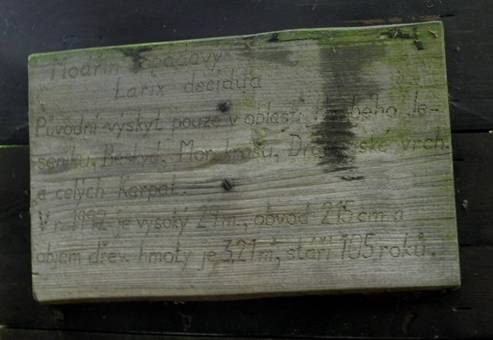 Modřín opadavý
Larix decidua
Původní výskyt pouze v oblasti Je-
seníku, Beskyd, Mor. krasu, vrch.
a celých Karpat.
V r. 1992 je vysoký 29 m., obvod 215 cm a
objem dřev. hmoty je 3,21 m³, stáří 105 roků.